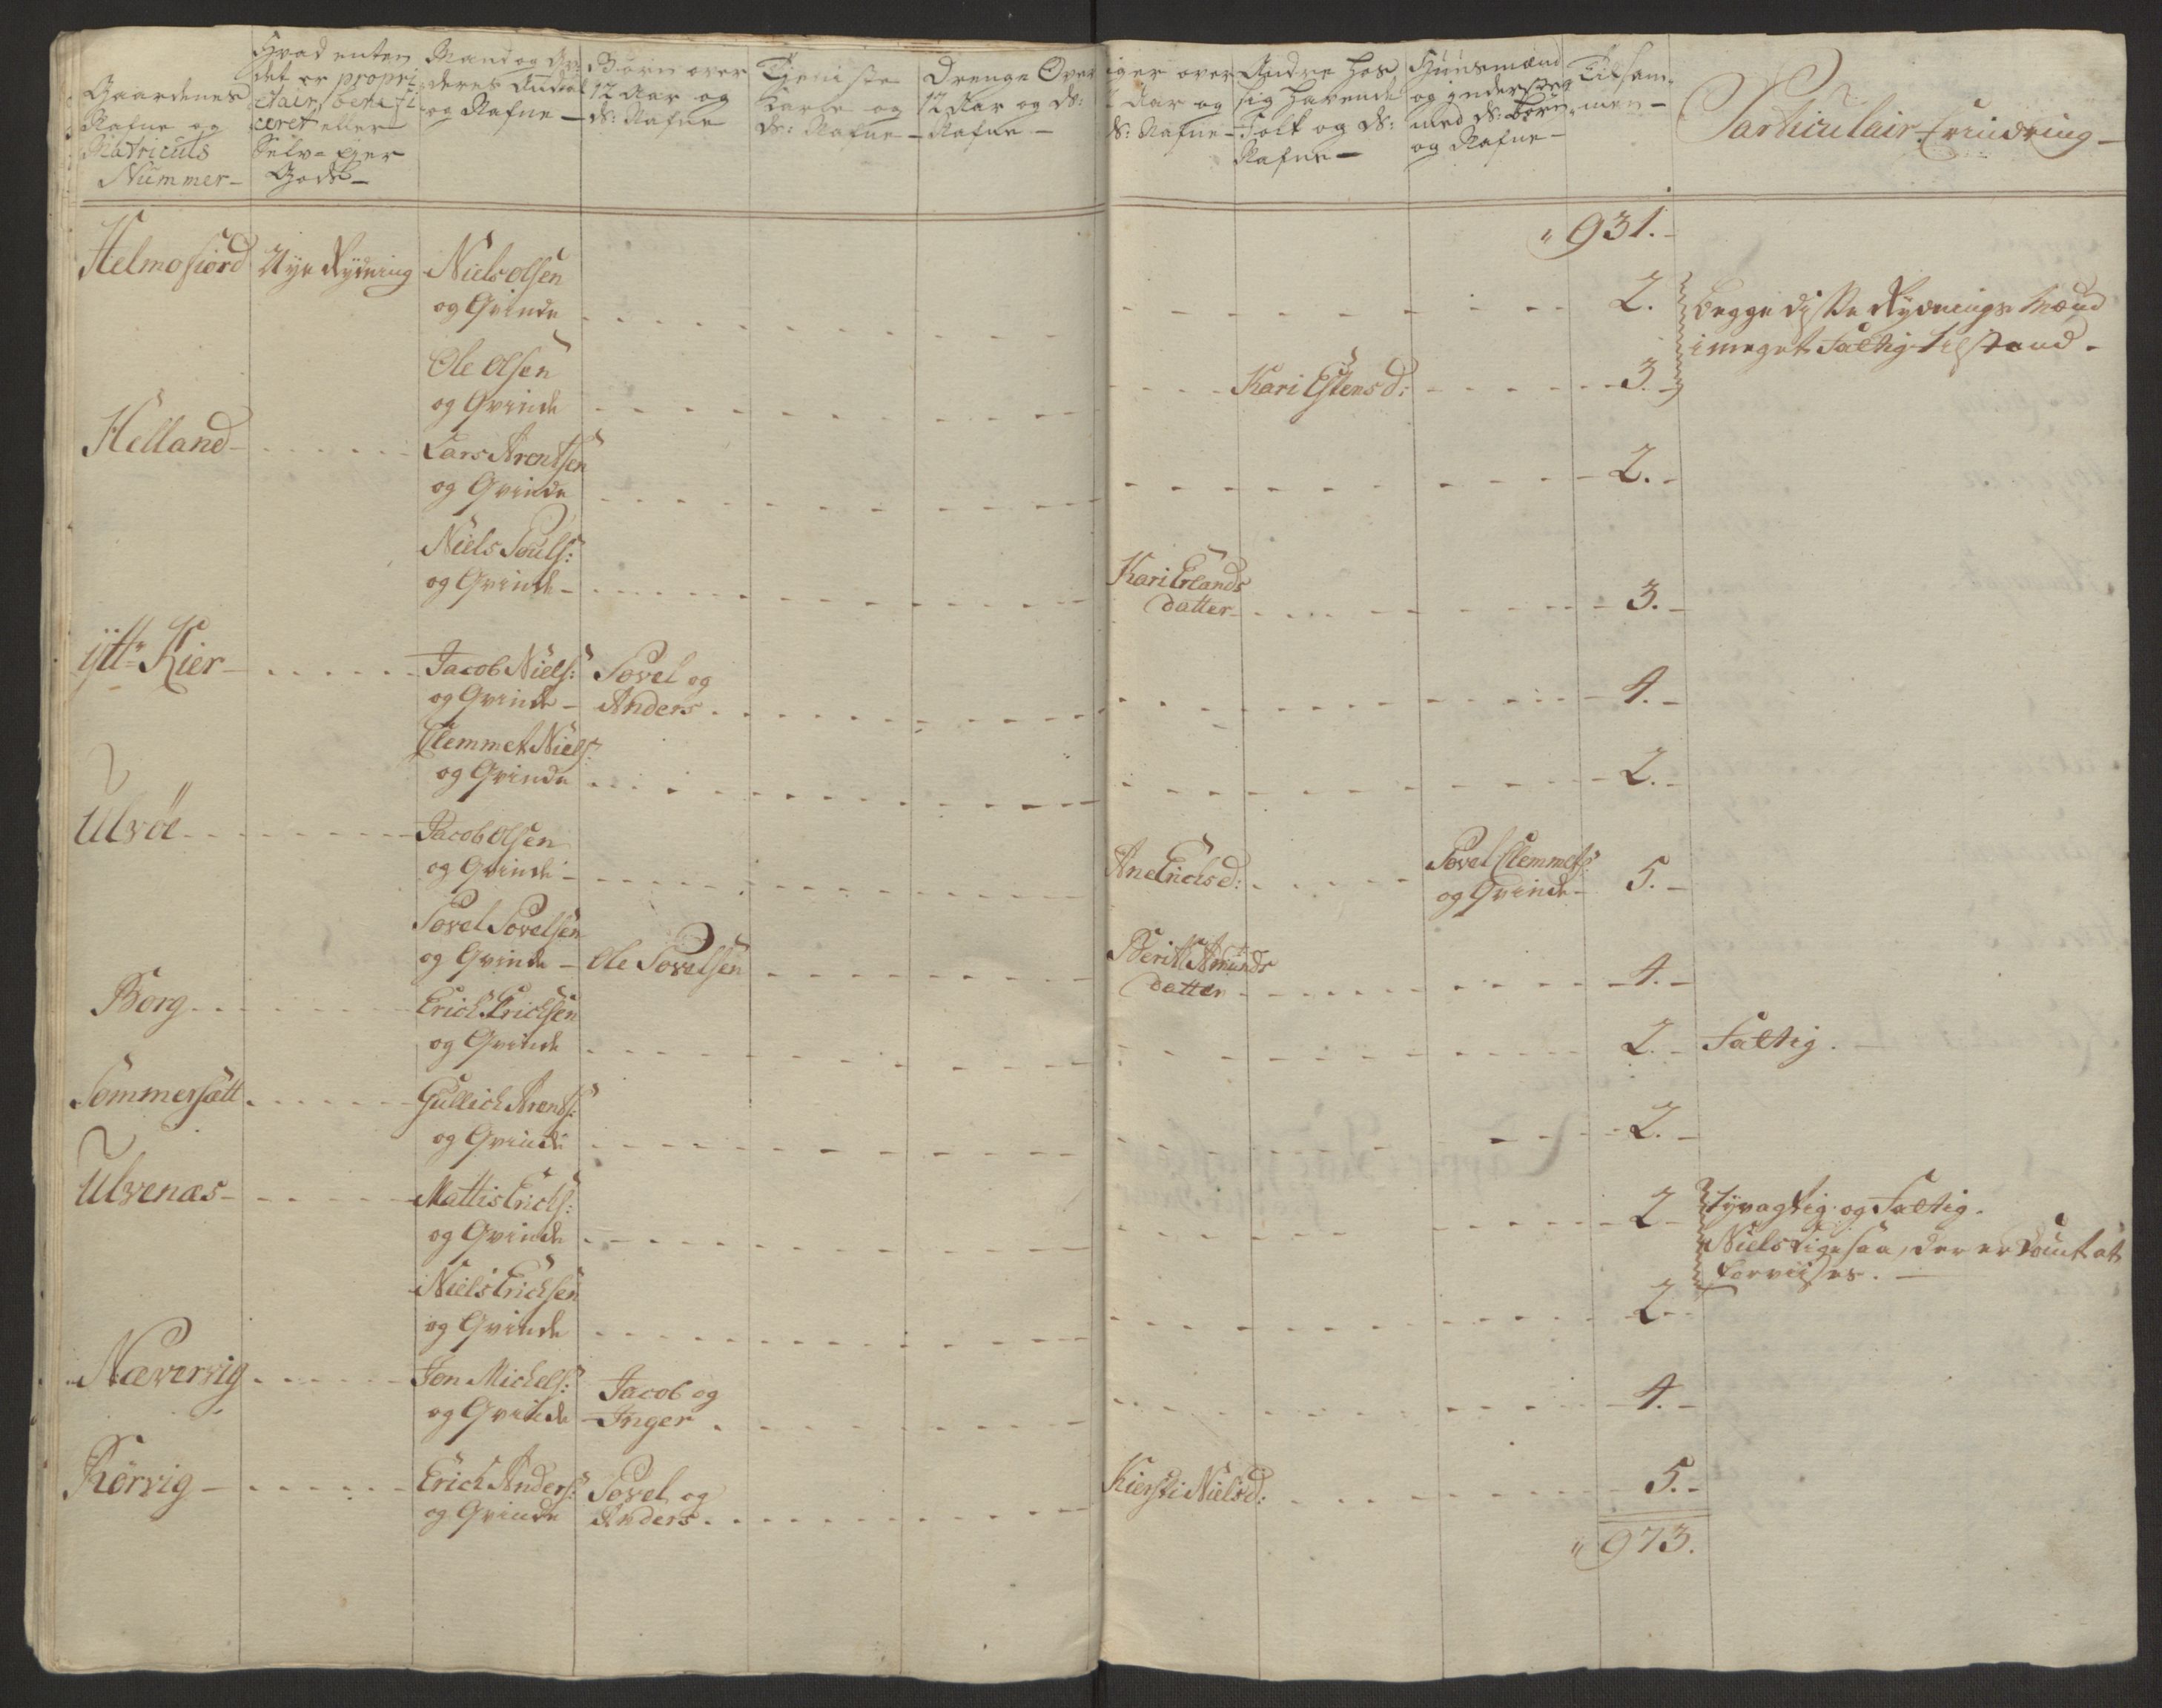 Gaardenes
Nafne og
Matriculs
Nummer-
Hvad enten
det er propri
etair, benefi
ceret eller
Selv-Ejer
Gods-
Mand og Qv:
deres Andtal
og Nafne-
Børn over
12 Aar og
ds: Nafne
Tieniste
Karle og
ds: Nafne-
Drenge Over
12 Aar og ds:
Nafne-
iger over
Aar og
ds: Nafne-
Andre hos
sig havende
Folk og ds:
Nafne-
Huusmænd
og inderster
med ds: børn
og Nafne-
Tilsam-
men-
Particulair Erindring-
" 931.-
Helmofiord Nye Rydning Niels Olsen
og Qvinde 2.
Begge disse Rydnings Mænd
i meget Fattig tilstand.
Ole Olsen
og Qvinde Kari Estensd: 3.
Helland- Lars Arentsen
og Qvinde 2.-
Niels Pouls:
og Qvinde- Kari Erlands
datter- 3.-
ÿtt: Kier- Jacob Niels: Povel og
og Qvinde- Anders. 4.-
Clemmet Niels:
og Qvinde 2.-
Ulvöe Jacob Olsen
og Qvinde- Ane Erichsd: Povel Clemmets:
og Qvinde- 5.-
Povel Povelsen
og Qvinde- Ole Povelsen Berit Amunds
datter 4.-
Borg Erich Erichsen
og Qvinde 2.- Fattig.-
Sommersætt Gullich Arents:
og Qvinde 2.-
Ulvenæs- Mattis Erichs:
og Qvinde 2- Tyvagtig og Fattig.
Niels ligesaa, der er Dømt at
forviises.-
Niels Erichsen
og Qvinde 2-
Nævervig Jon Michels: Jacob og
og Qvinde Inger. 4.-
Körvig- Erich Anders: Povel og
og Qvinde Anders. Kiersti Nielsd: 5.-
" 973.